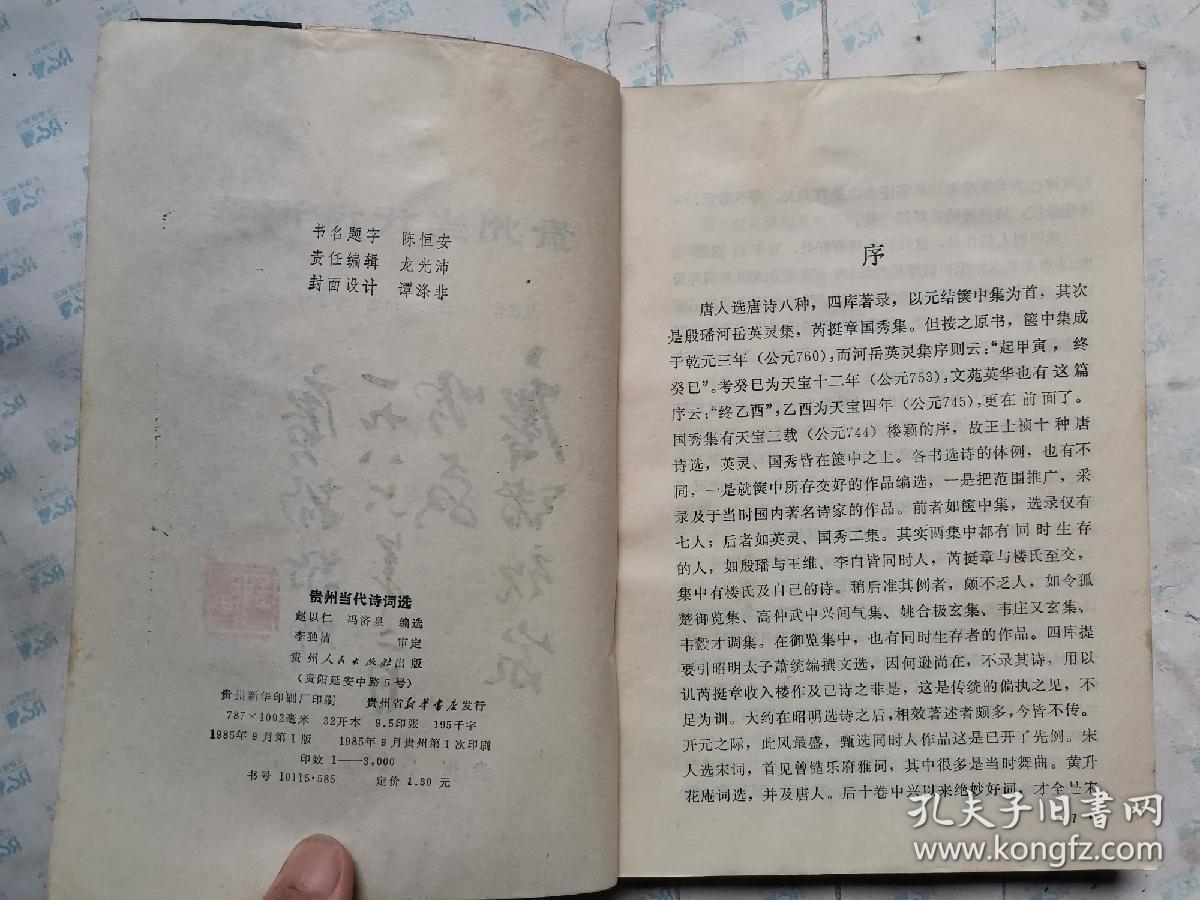 书名题字 陈恒安
责任编辑 龙光沛
封面设计 谭涤非
贵州当代诗词选
赵以仁 冯济泉 编选
李独清 审定
贵州人民出版社出版
(贵阳延安中路5号)
贵州新华印刷厂印刷 贵州省新华书店发行
787×1092毫米 32开本 9.5印张 195千字
1985年9月第1版 1985年9月贵州第1次印刷
印数1—3,000
书号 10115·585 定价 1.30元
序
唐人选唐诗八种，四库著录，以元结箧中集为首，其次
是殷璠河岳英灵集，芮挺章国秀集。但按之原书，箧中集成
于乾元三年（公元760），而河岳英灵集序则云：“起甲寅，终
癸巳”。考癸巳为天宝十二年（公元753），文苑英华也有这篇
序云：“终乙酉”，乙酉为天宝四年（公元745），更在前面了。
国秀集有天宝三载（公元744）楼颖的序，故王士祯十种唐
诗选，英灵、国秀皆在箧中之上。各书选诗的体例，也有不
同，一是就箧中所存交好的作品编选，一是把范围推广，采
录及于当时国内著名诗家的作品。前者如箧中集，选录仅有
七人；后者如英灵、国秀二集。其实两集中都有同时生存
的人，如殷璠与王维、李白皆同时人，芮挺章与楼氏至交，
集中有楼氏及自己的诗。稍后准其例者，颇不乏人，如令狐
楚御览集、高仲武中兴间气集、姚合极玄集、韦庄又玄集、
韦縠才调集。在御览集中，也有同时生存者的作品。四库提
要引昭明太子萧统编撰文选，因何逊尚在，不录其诗，用以
讥芮挺章收入楼作及己诗之非是，这是传统的偏执之见，不
足为训。大约在昭明选诗之后，相效著述者颇多，今皆不传。
开元之际，此风最盛，甄选同时人作品这是已开了先例。宋
人选宋词，首见曾慥乐府雅词，其中很多是当时舞曲。黄升
花庵词选，并及唐人。后十卷中兴以来绝妙好词，才全是宋
孔夫子旧书网
www.kongfz.com